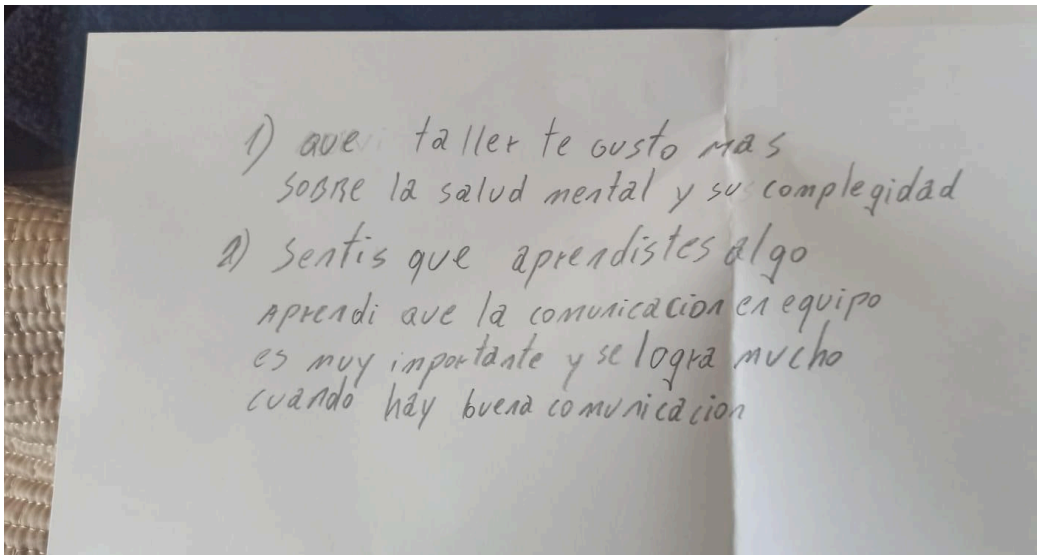 1) que taller te gusto mas
SOBRE la salud mental y su complegidad
2) Sentis que aprendistes algo
Aprendi que la comunicacion en equipo
es muy importante y se logra mucho
cuando hay buena comunicacion